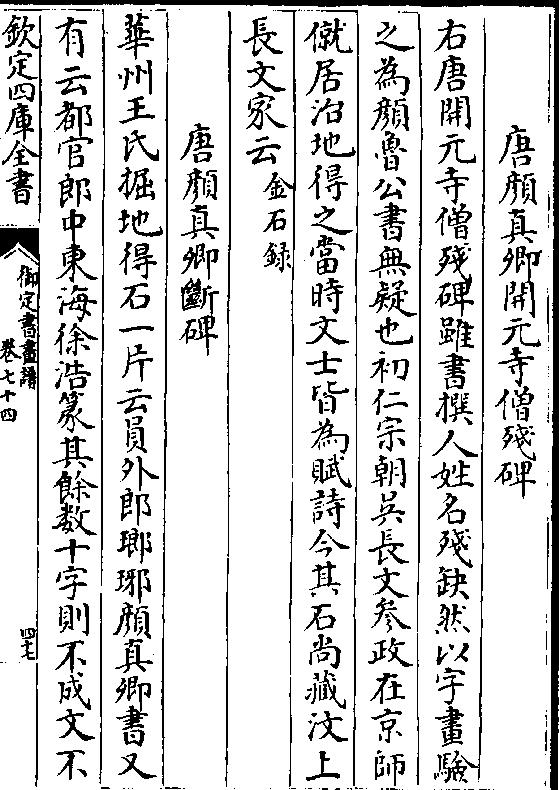 唐顔真卿開元寺僧殘碑
右唐開元寺僧殘碑雖書撰人姓名殘缺然以字畫驗
之為顔魯公書無疑也初仁宗朝吳長文參政在京師
僦居治地得之當時文士皆為賦詩今其石尚藏汶上
長文家云金石録
唐顔真卿斷碑
華州王氏掘地得石一片云員外郎瑯琊顔真卿書又
有云都官郎中東海徐浩篆其餘数十字則不成文不
欽定四庫全書
御定書畫譜
卷七十四
四七